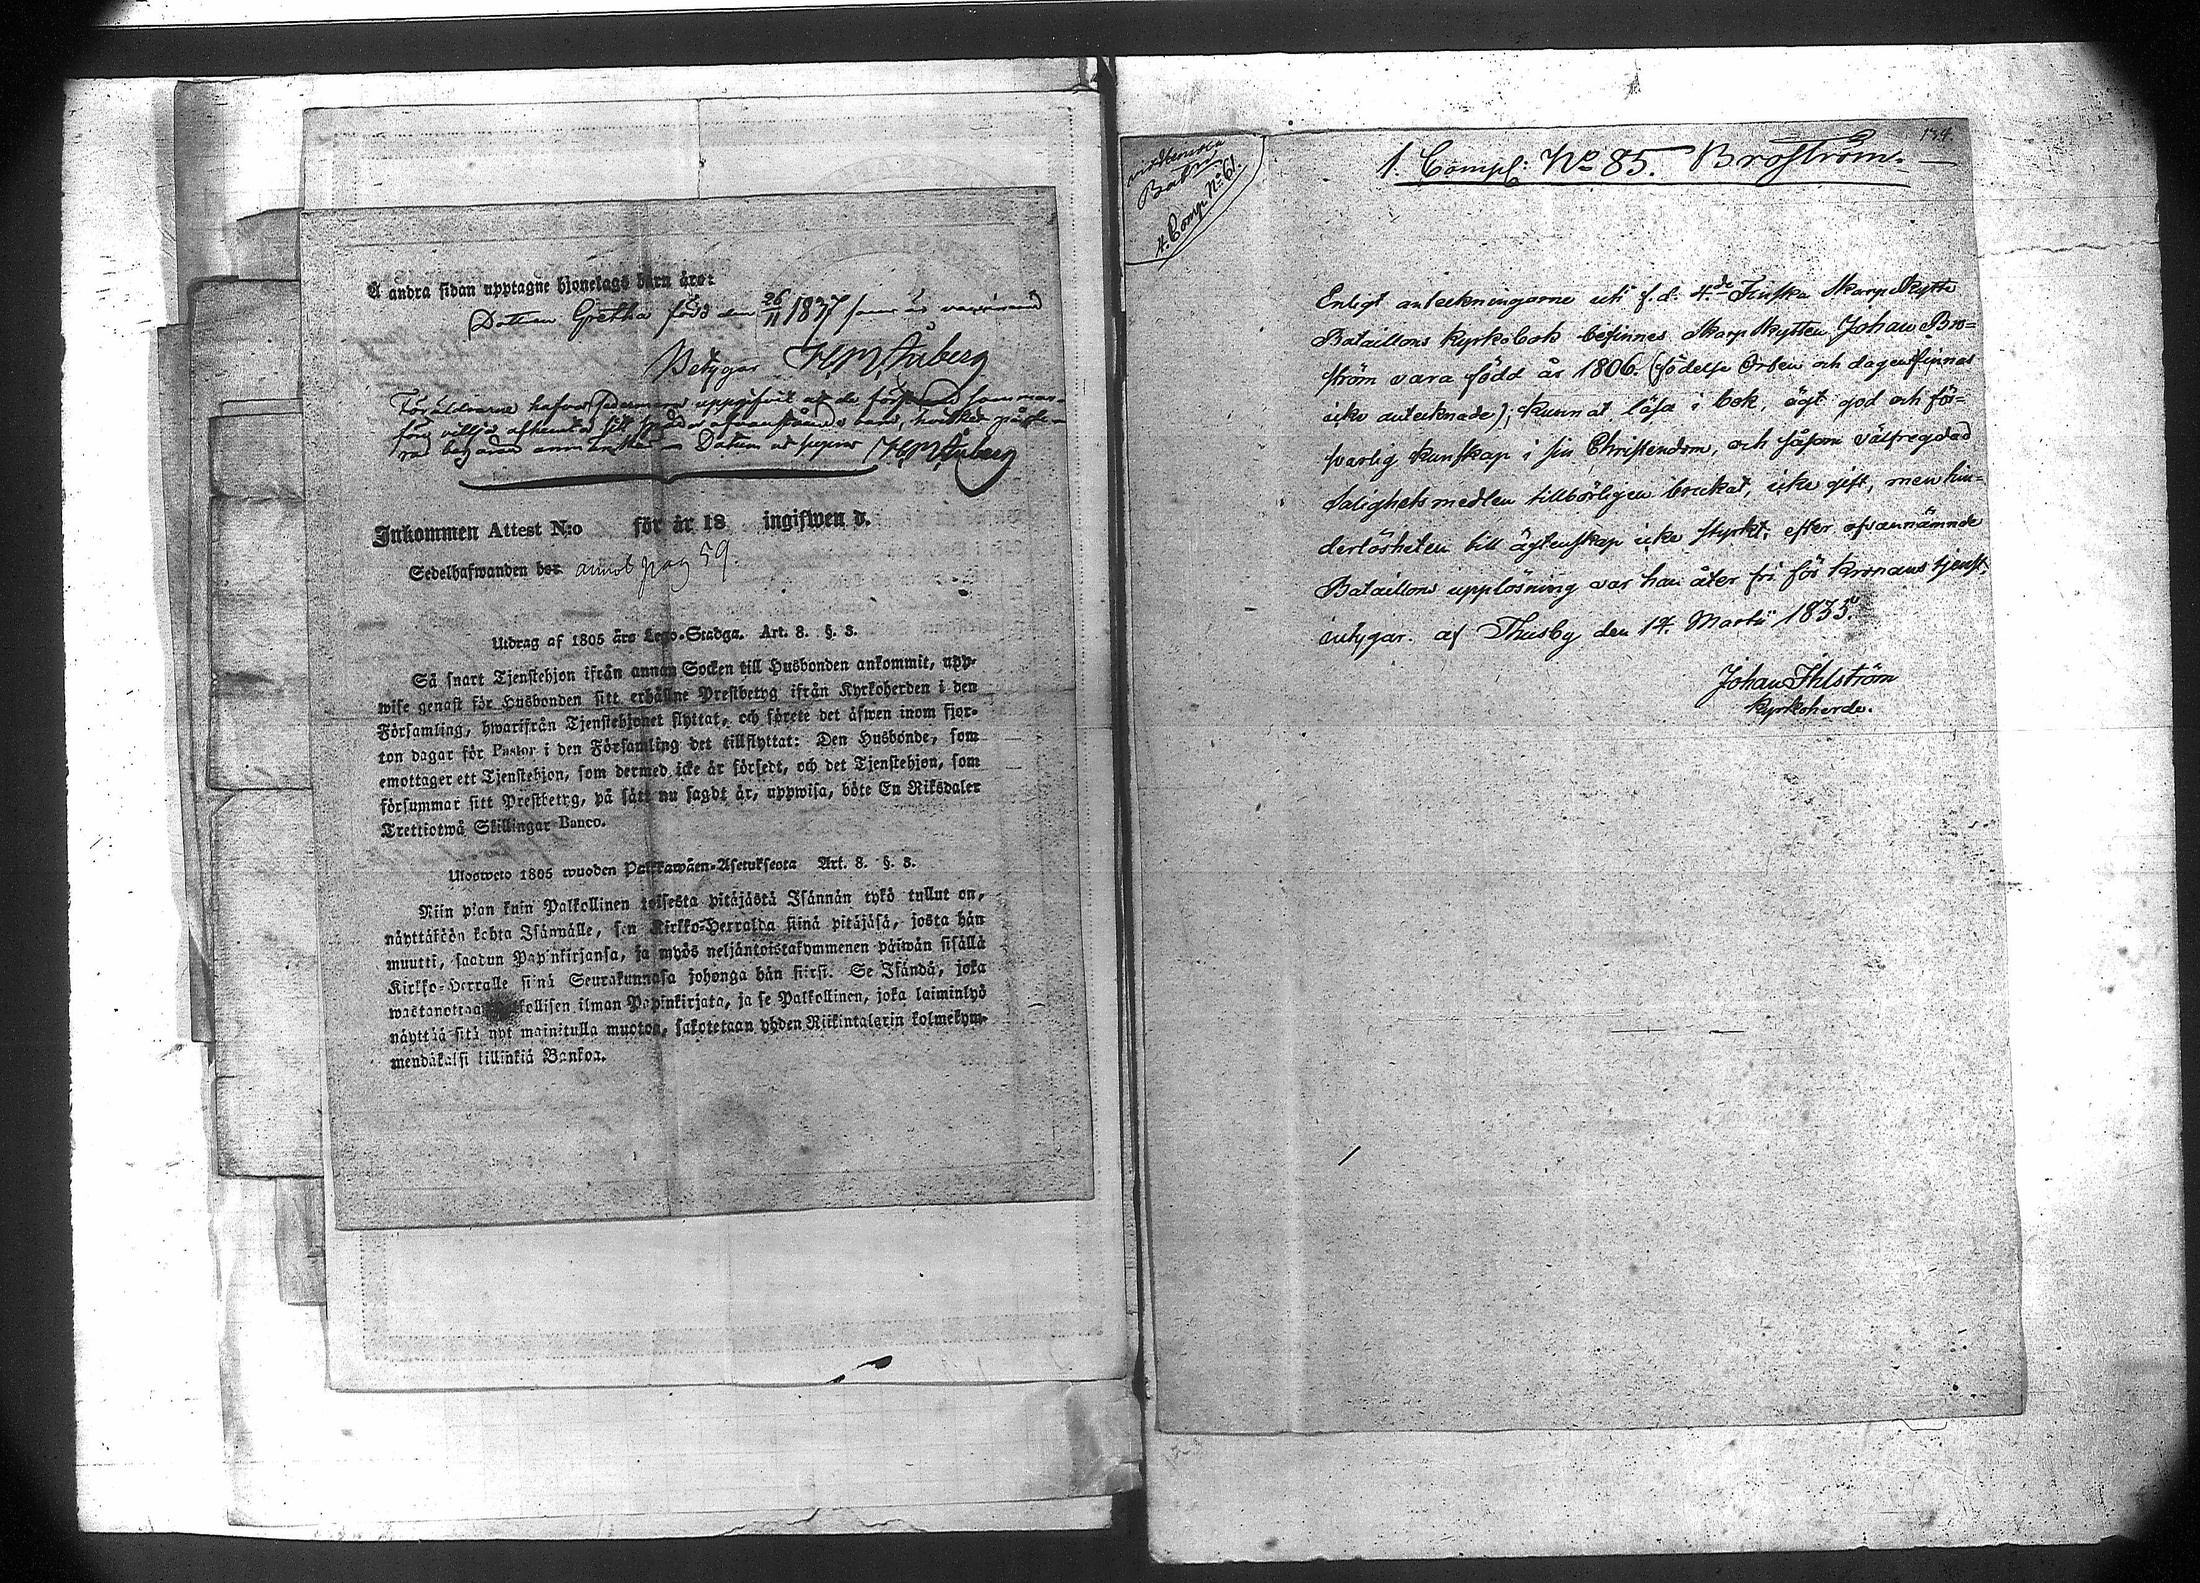 Å andra sidan upptagne hjonelags barn äro:
Dottren Gretha född den 26/11 1837 som är vaccinerad
Betygar H M Årberg
Föräldrarne hafva uppgifvit at de
Datum ut supra H M Årberg
Inkommen Attest N:o för år 18 ingifwen d.
Sedelhafwanden bor annot pag 59.
Utdrag af 1805 års Lego-Stadga. Art. 8. §. 3.
Så snart Tjenstehjon ifrån annan Socken till Husbonden ankommit, upp-
wise genast för Husbonden sitt erhållne Prestbetyg ifrån Kyrkoherden i den
Församling, hwarifrån Tjenstehjonet flyttat, och förete det äfwen inom fjor-
ton dagar för Pastor i den Församling det tillflyttat: Den Husbonde, som
emottager ett Tjenstehjon, som dermed icke är försedt, och det Tjenstehjon, som
försummar sitt Prestbetyg, på sätt nu sagdt är, uppwisa, böte En Riksdaler
Trettiotwå Skillingar Banco.
Ulosweto 1805 wuoden Palkkawäen-Asetuksesta Art. 8. §. 3.
Niin pian kuin Palkollinen toisesta pitäjästä Isännän tykö tullut on,
näyttäköön kohta Isännälle, sen Kirkko-Herralda siinä pitäjäsä, josta hän
muutti, saadun Papinkirjansa, ja myös neljäntoistakymmenen päiwän sisällä
Kirkko-Herralle siinä Seurakunnasa johonga hän siirsi. Se Isändä, joka
wastanottaa Palkollisen ilman Papinkirjata, ja se Palkollinen, joka laiminlyö
näyttää sitä nyt mainitulla muotoa, sakotetaan yhden Riikintalarin kolmekym-
mendäkaksi killinkiä Bankoa.
134.
1. Comp: No 85. Broström.
Batn:
4. Comp No 61
Enligt anteckningarne uti f.d. 4de Finska Skarp Skytte
Bataillons Kyrkobok befinnes Skarp Skytten Johan Bro-
ström vara född år 1806. (födelse Orten och dagen finnas
icke antecknade); kunnat läsa i bok, ägt god och för-
svarlig kunskap i sin Christendom, och såsom välfregdad
Salighetsmedlen tillbörligen brukat, icke gift, men hin-
derlösheten till ägtenskap icke styrkt; efter ofvannämnde
Bataillons upplösning var han åter fri för Kronans tjenst;
intygar. af Thusby den 14. Martii 1835.
Johan Ihlström
Kyrkoherde.